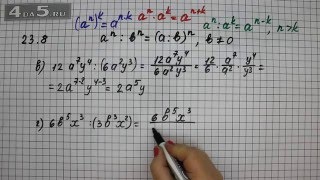 4DA5.RU
(aⁿ)ᵏ = aⁿ·ᵏ aⁿ·aᵏ = aⁿ⁺ᵏ
aⁿ : aᵏ = aⁿ⁻ᵏ, n > k
23.8 aⁿ : bⁿ = (a:b)ⁿ, b ≠ 0
в) 12a⁷y⁴ : (6a²y³) = 12a⁷y⁴/6a²y³ = 12/6 · a⁷/a² · y⁴/y³ =
= 2a⁷⁻²y⁴⁻³ = 2a⁵y
г) 6b⁵x³ : (3b³x²) = 6b⁵x³